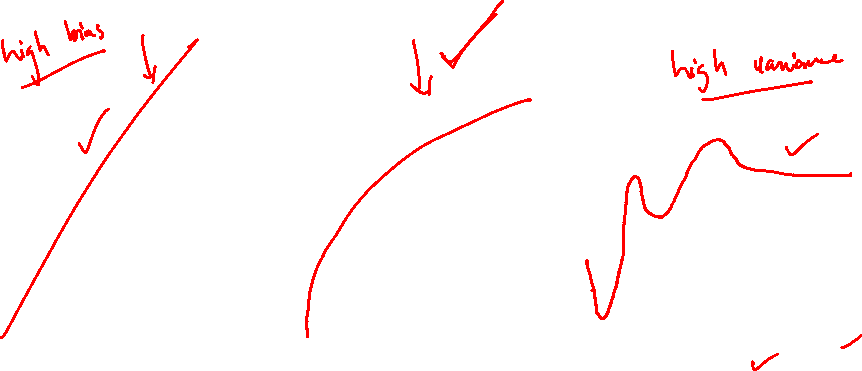 high bias
high variance